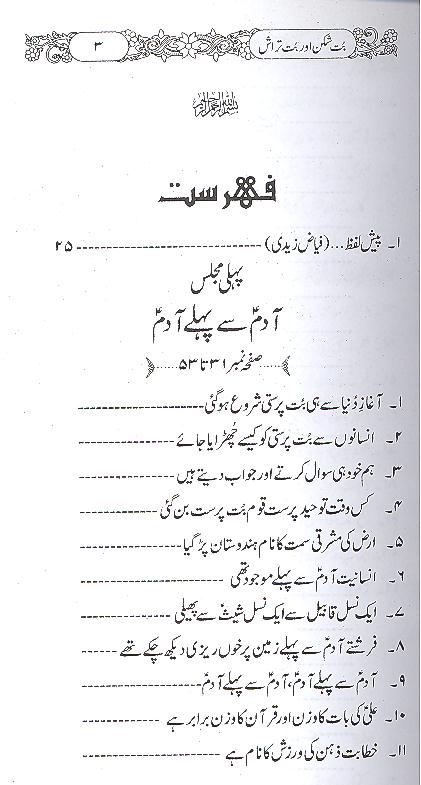 بُت شکن اور بُت تراش ۳
بسم اللہ الرحمن الرحیم
فہرست
۱۔ پیش لفظ... (فیاض زیدی) ------------------------------ ۲۵
پہلی مجلس
آدمؑ سے پہلے آدمؑ
صفحہ نمبر ۳۱ تا ۵۳.....
۱۔ آغازِ دُنیا سے ہی بُت پرستی شروع ہو گئی --------------------
۲۔ انسانوں سے بُت پرستی کو کیسے چُھڑایا جائے --------------------
۳۔ ہم خود ہی سوال کرتے اور جواب دیتے ہیں --------------------
۴۔ کس وقت توحید پرست قوم بُت پرست بن گئی --------------------
۵۔ ارض کی مشرقی سمت کا نام ہندوستان پڑ گیا --------------------
۶۔ انسانیت آدمؑ سے پہلے موجود تھی --------------------
۷۔ ایک نسل قابیل سے ایک نسل شیثؑ سے پھیلی --------------------
۸۔ فرشتے آدمؑ سے پہلے زمین پر خوں ریزی دیکھ چکے تھے ------
۹۔ آدمؑ سے پہلے آدمؑ، آدمؑ سے پہلے آدمؑ --------------------
۱۰۔ علیؑ کی بات کا وزن اور قرآن کا وزن برابر ہے ------------
۱۱۔ خطابت ذہن کی ورزش کا نام ہے --------------------